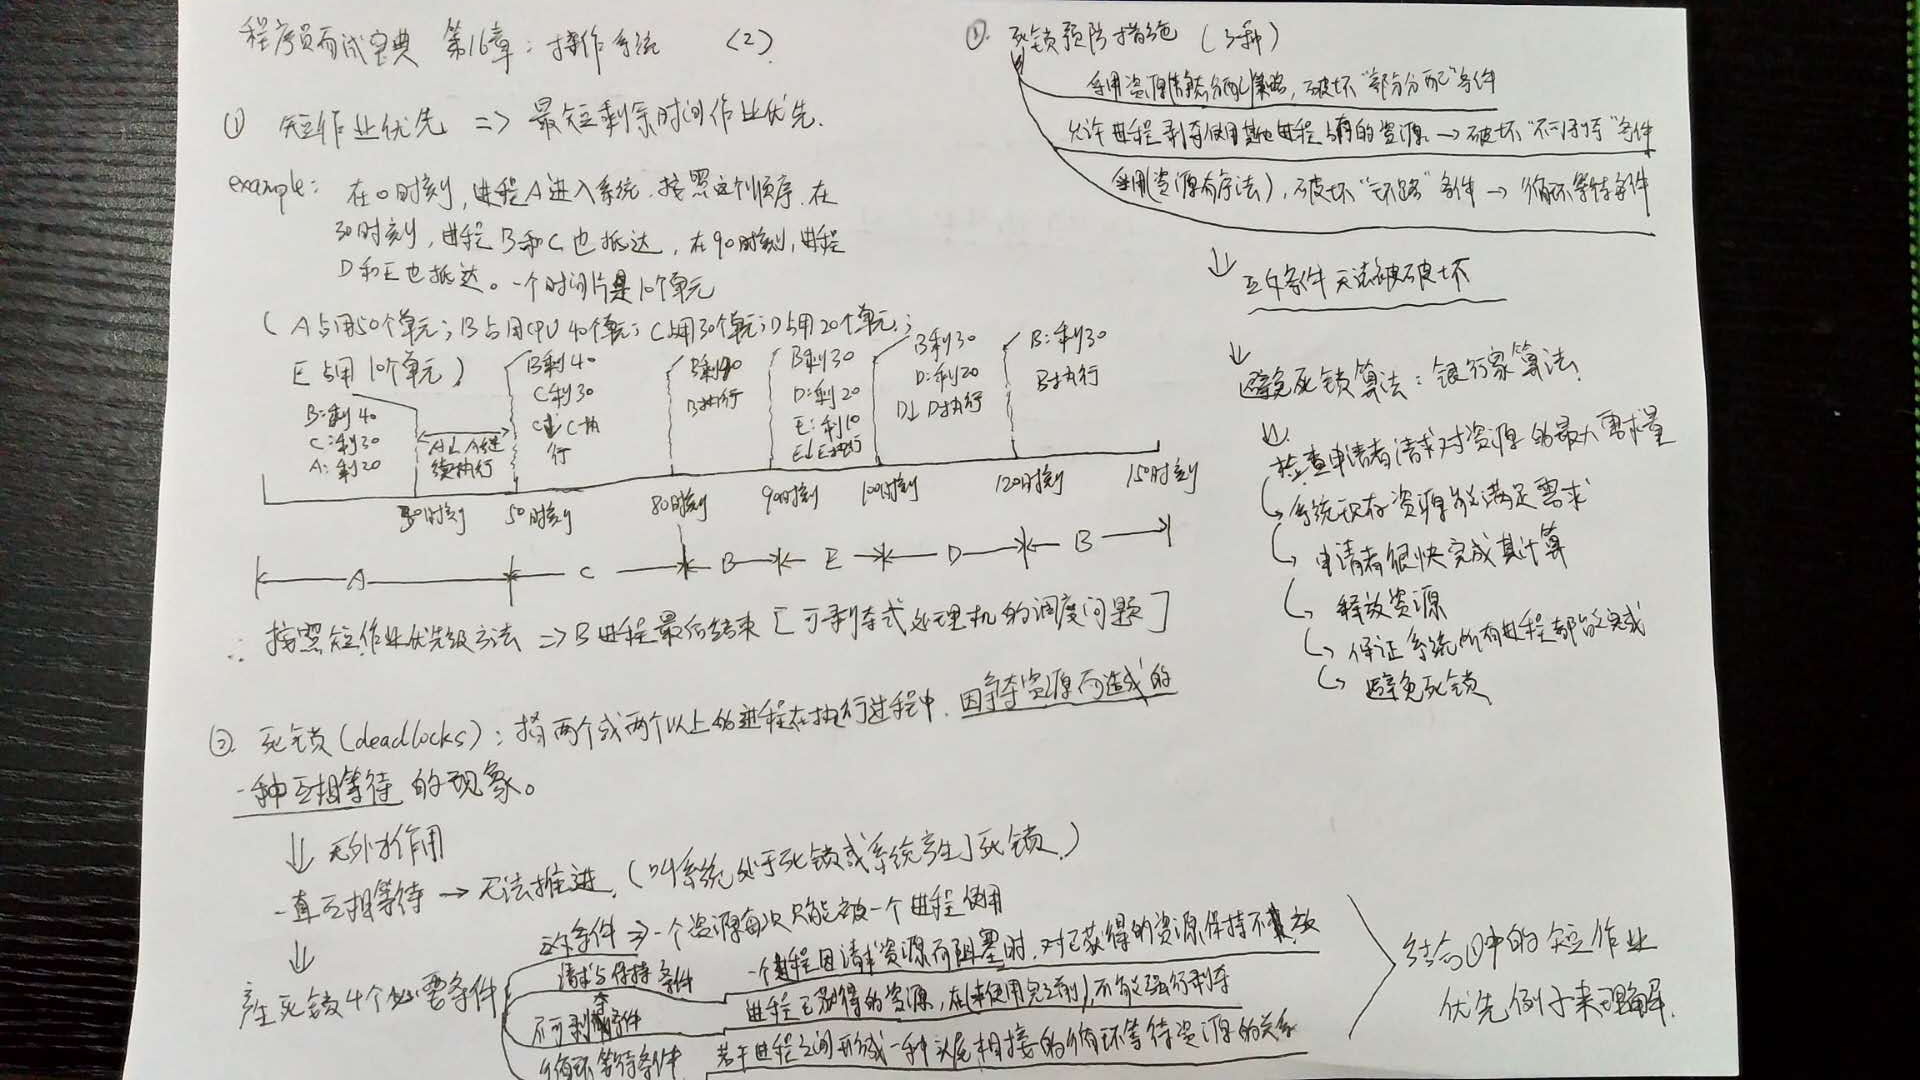 程序员面试宝典 第16章：操作系统 （2）
① 短作业优先 => 最短剩余时间作业优先.
example: 在0时刻，进程A进入系统，按照这个顺序，在
30时刻，进程B和C也抵达，在90时刻，进程
D和E也抵达。一个时间片是10个单元
（A占用50个单元；B占用CPU 40个单元；C占用30个单元；D占用20个单元；
E占用10个单元）
B:剩40
C:剩30
A:剩20
A↓ A继
续执行
B剩40
C剩30
C↓ C执
行
B剩40
B执行
B剩30
D:剩20
E:剩10
E↓E执行
B剩30
D:剩20
D↓ D执行
B:剩30
B执行
30时刻 50时刻 80时刻 90时刻 100时刻 120时刻 150时刻
A C B E D B
∴ 按照短作业优先级方法 => B进程最后结束 [可剥夺式处理机的调度问题]
② 死锁(deadlocks)：指两个或两个以上的进程在执行过程中，因争夺资源而造成的
一种互相等待的现象。
↓ 无外力作用
一直互相等待 → 无法推进，（叫系统处于死锁或系统产生了死锁）
↓
产生死锁4个必要条件
互斥条件 => 一个资源每次只能被一个进程使用
请求与保持条件 一个进程因请求资源而阻塞时，对已获得的资源保持不放
不可剥夺条件 进程已获得的资源，在(未使用完之前)，不能强行剥夺
循环等待条件 若干进程之间形成一种头尾相接的循环等待资源的关系
结合①中的短作业
优先例子来理解.
死锁预防措施（3种）
采用资源静态分配策略，破坏“部分分配”条件
允许进程剥夺使用其他进程占有的资源 → 破坏“不可剥夺”条件
采用(资源有序法)，破坏“环路”条件 → 循环等待条件
↓ 互斥条件无法被破坏
↓
避免死锁算法：银行家算法
↓
检查申请者请求对资源的最大需求量
↳ 系统现存资源能满足需求
↳ 申请者很快完成其计算
↳ 释放资源
↳ 保证系统所有进程都能完成
↳ 避免死锁